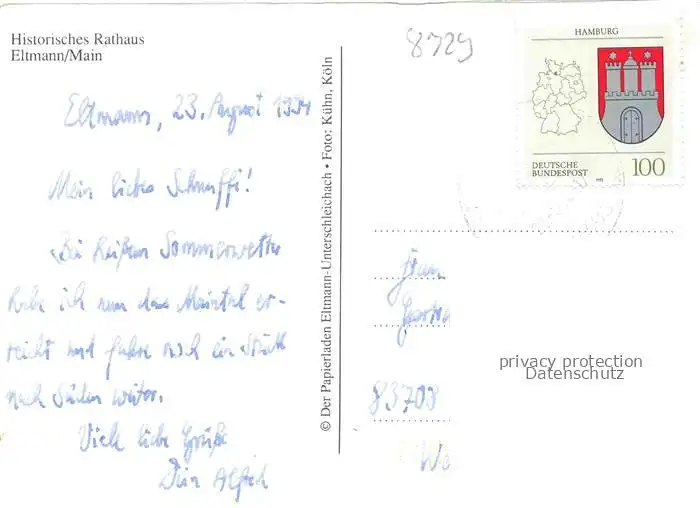 Historisches Rathaus
Eltmann/Main
8729
HAMBURG
DEUTSCHE
BUNDESPOST
100
Eltmann, 23. August 1994
Mein liebes Schnuffi!
Bei heißem Sommerwetter
habe ich nun das Maintal er-
reicht und fahre noch ein Stück
nach Süden weiter.
Viele liebe Grüße
Dein
© Der Papierladen Eltmann-Unterschleichach • Foto: Kühn, Köln
Frau
83703
We
privacy protection
Datenschutz